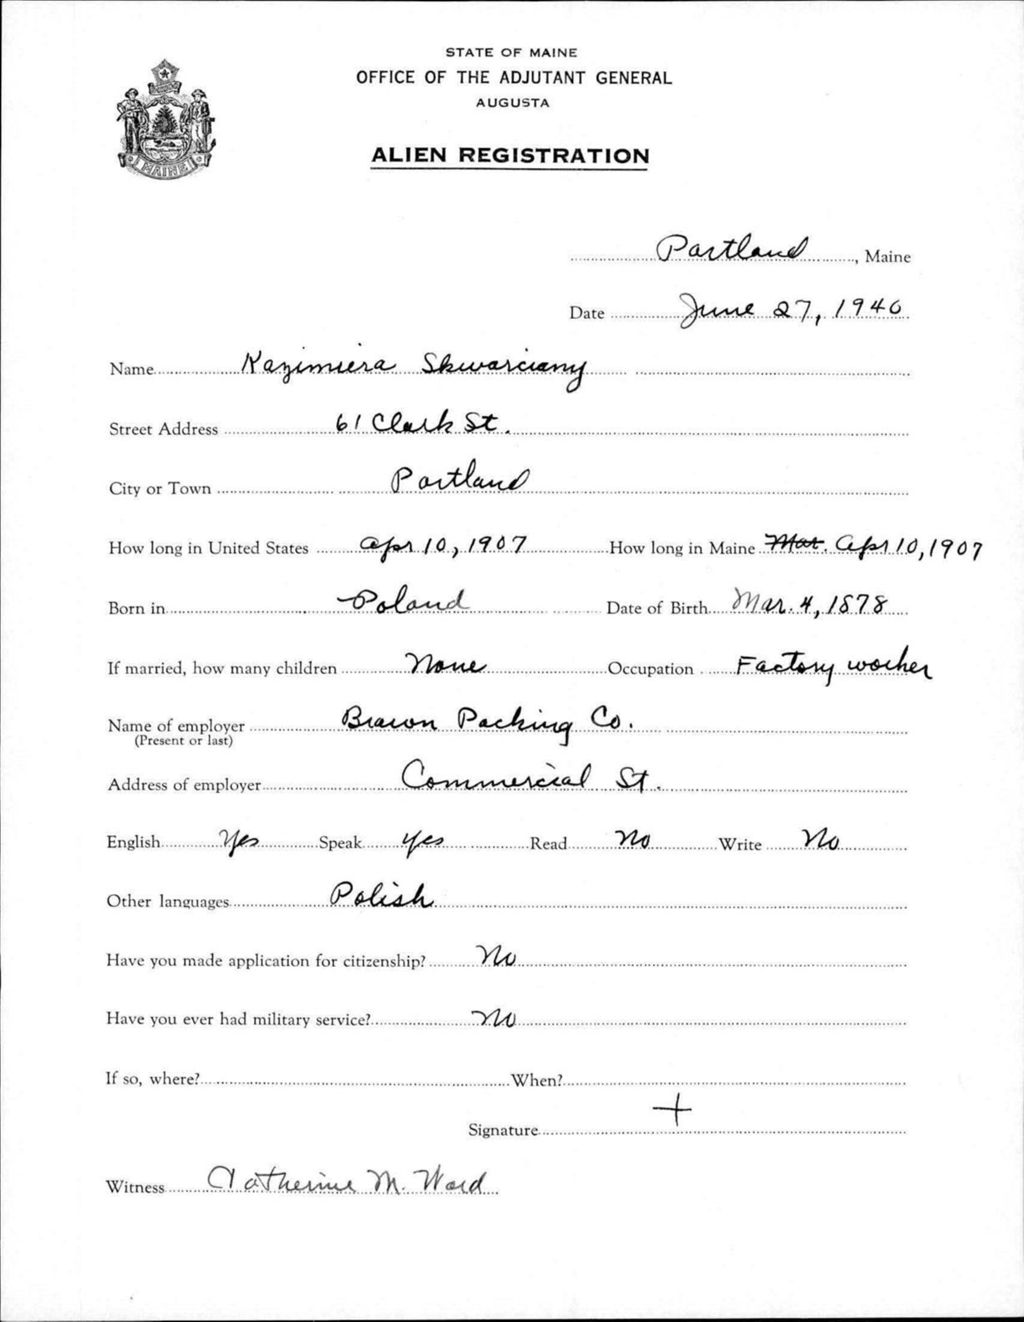 STATE OF MAINE
OFFICE OF THE ADJUTANT GENERAL
AUGUSTA
ALIEN REGISTRATION
MAINE
Portland, Maine
Date June 27, 1940
Name Kazimiera Skwarciany
Street Address 61 Clark St.
City or Town Portland
How long in United States Apr 10, 1907 How long in Maine Mar. Apr 10, 1907
Born in Poland Date of Birth Mar. 4, 1878
If married, how many children None Occupation Factory worker
Name of employer Brawn Packing Co.
(Present or last)
Address of employer Commercial St.
English Yes Speak yes Read No Write No
Other languages Polish
Have you made application for citizenship? No
Have you ever had military service? No
If so, where? When?
Signature +
Witness Catherine M. Ward